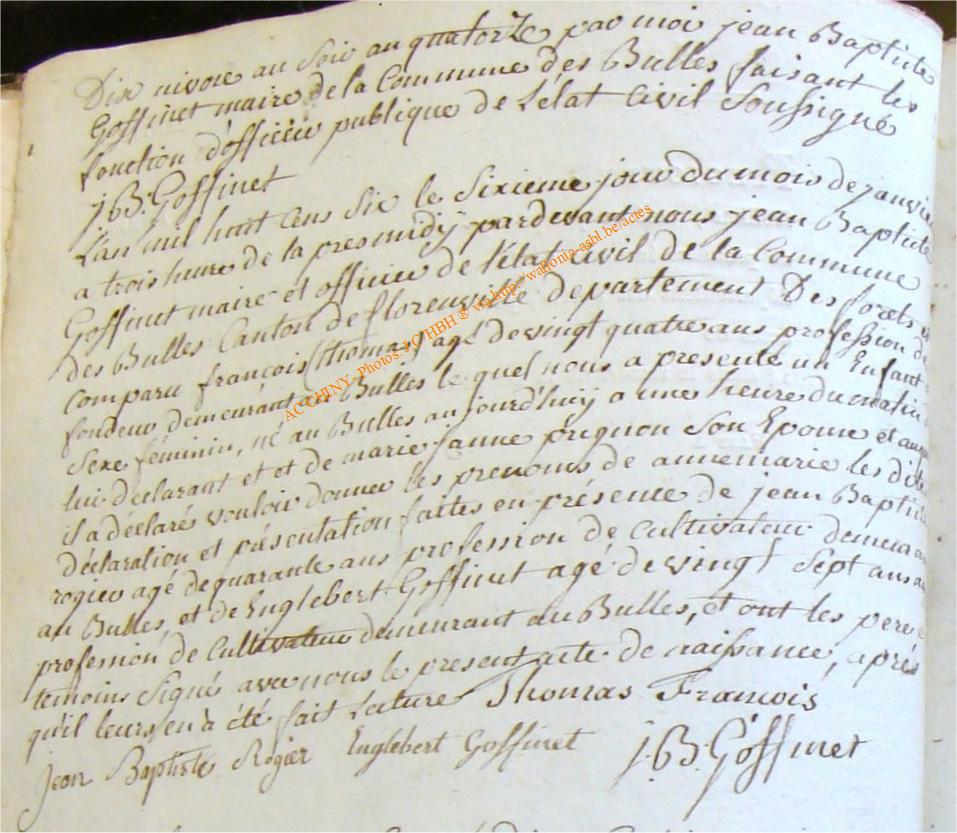 Dix nivose au Soir an quatorze par moi jean Baptiste
Goffinet maire de la Commune des Bulles faisant les
fonction d'officier publique de l'état Civil Soussigné
J.B. Goffinet
L'an mil huit cens Six le Sixieme jour Du mois de janvier
a trois heure de la presmidÿ pardevant nous jean Baptiste
Goffinet maire et officier de l'état civil de la Commune
des Bulles Canton de florenville departement Des forets
Comparu françois (thomas) agé de vingt quatre ans profession de
fondeur demeurant au Bulles le quel nous a presenté un Enfant
Sexe féminin, né au Bulles aujourd'huÿ a une heure du matin
lui declarant et et de marie janne prignon Son Epouse et auquel
il a déclaré vouloir donner les prenoms de annemarie les dites
déclaration et présentation faites en présence de jean Baptiste
rogier agé de quarante ans profession de Cultivateur demeurant
au Bulles, et de Englebert Goffinet agé de vingt Sept ans
profession de Cultivateur demeurant au Bulles, et ont les pere et
temoins Signé avec nous le present acte de naissance, aprés
qu'il leurs en a été fait Lecture Thomas François
Jean Baptiste Rogier Englebert Goffinet J.B. Goffinet
AC CHINY- Photos: LC/HBH ® via http://wallonia-asbl.be/actes